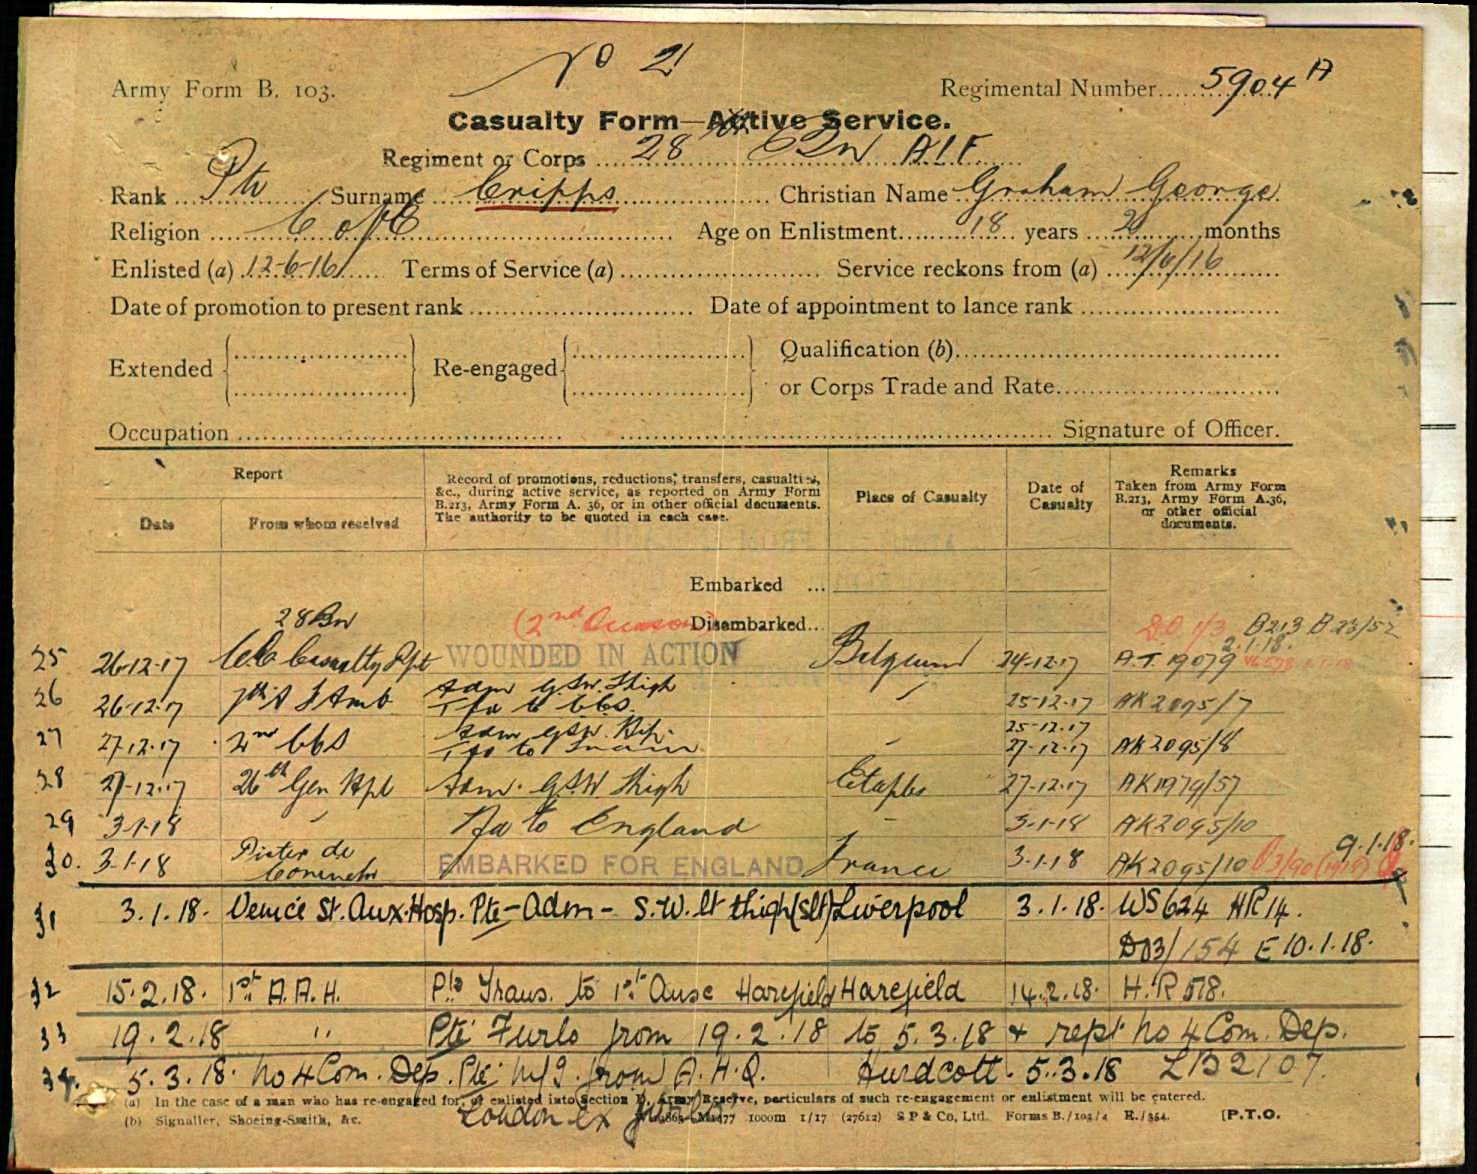 No 2
Army Form B. 103.
Regimental Number 5904 A
Casualty Form—Active Service.
Regiment or Corps 28 Bn A.I.F.
Rank Pte Surname Cripps Christian Name Graham George
Religion C of E Age on Enlistment 18 years 2 months
Enlisted (a) 12-6-16 Terms of Service (a) Service reckons from (a) 12/6/16
Date of promotion to present rank Date of appointment to lance rank
Extended Re-engaged Qualification (b)
or Corps Trade and Rate
Occupation Signature of Officer.
Report Record of promotions, reductions, transfers, casualties, &c., during active service, as reported on Army Form B.213, Army Form A. 36, or in other official documents. The authority to be quoted in each case. Place of Casualty Date of Casualty Remarks Taken from Army Form B.213, Army Form A.36, or other official documents.
Date From whom received
Embarked ...
28 Bn (2nd Occasion) Disembarked... D.O. 1/3 B213 B23/52
2.1.18.
25 26-12-17 Casualty Rpt WOUNDED IN ACTION Belgium 24-12-17 A.T. 19079
26 26-12-17 7th A F Amb Adm G.S.W. Thigh 25-12-17 AK2095/7
Tfd to CCS.
27 27.12.17 2nd CCS Adm GSW Hip. 25-12-17
Tfd to Train 27-12-17 AK2095/8
28 27-12-17 26th Gen Hpl Adm. G.S.W Thigh Etaples 27-12-17 AK1979/57
29 3-1-18 " To England " 3-1-18 AK2095/10
9.1.18.
30. 3-1-18 Pieter de Coninck EMBARKED FOR ENGLAND France 3-1-18 AK2095/10
31 3.1.18. Venice St. Aux. Hosp. Pte - Adm - S.W. lt thigh (slt) Liverpool 3.1.18. WS624 HR14.
D03/154 E 10.1.18.
32 15.2.18. 1st A.A.H. Pte Trans. to 1st Ausc Harefield Harefield 14.2.18. H.R 518.
33 19.2.18 " Pte Furlo from 19.2.18 to 5.3.18 & rept no 4 Com. Dep.
34. 5.3.18. no 4 Com. Dep. Pte M/I from A.H.Q. Hurdcott. 5.3.18 LB2107.
London ex furlo
(a) In the case of a man who has re-engaged for, or enlisted into Section D, Army Reserve, particulars of such re-engagement or enlistment will be entered.
(b) Signaller, Shoeing-Smith, &c. 1000m 1/17 (27612) S P & Co, Ltd. Forms B./103/4 R./354. [P.T.O.